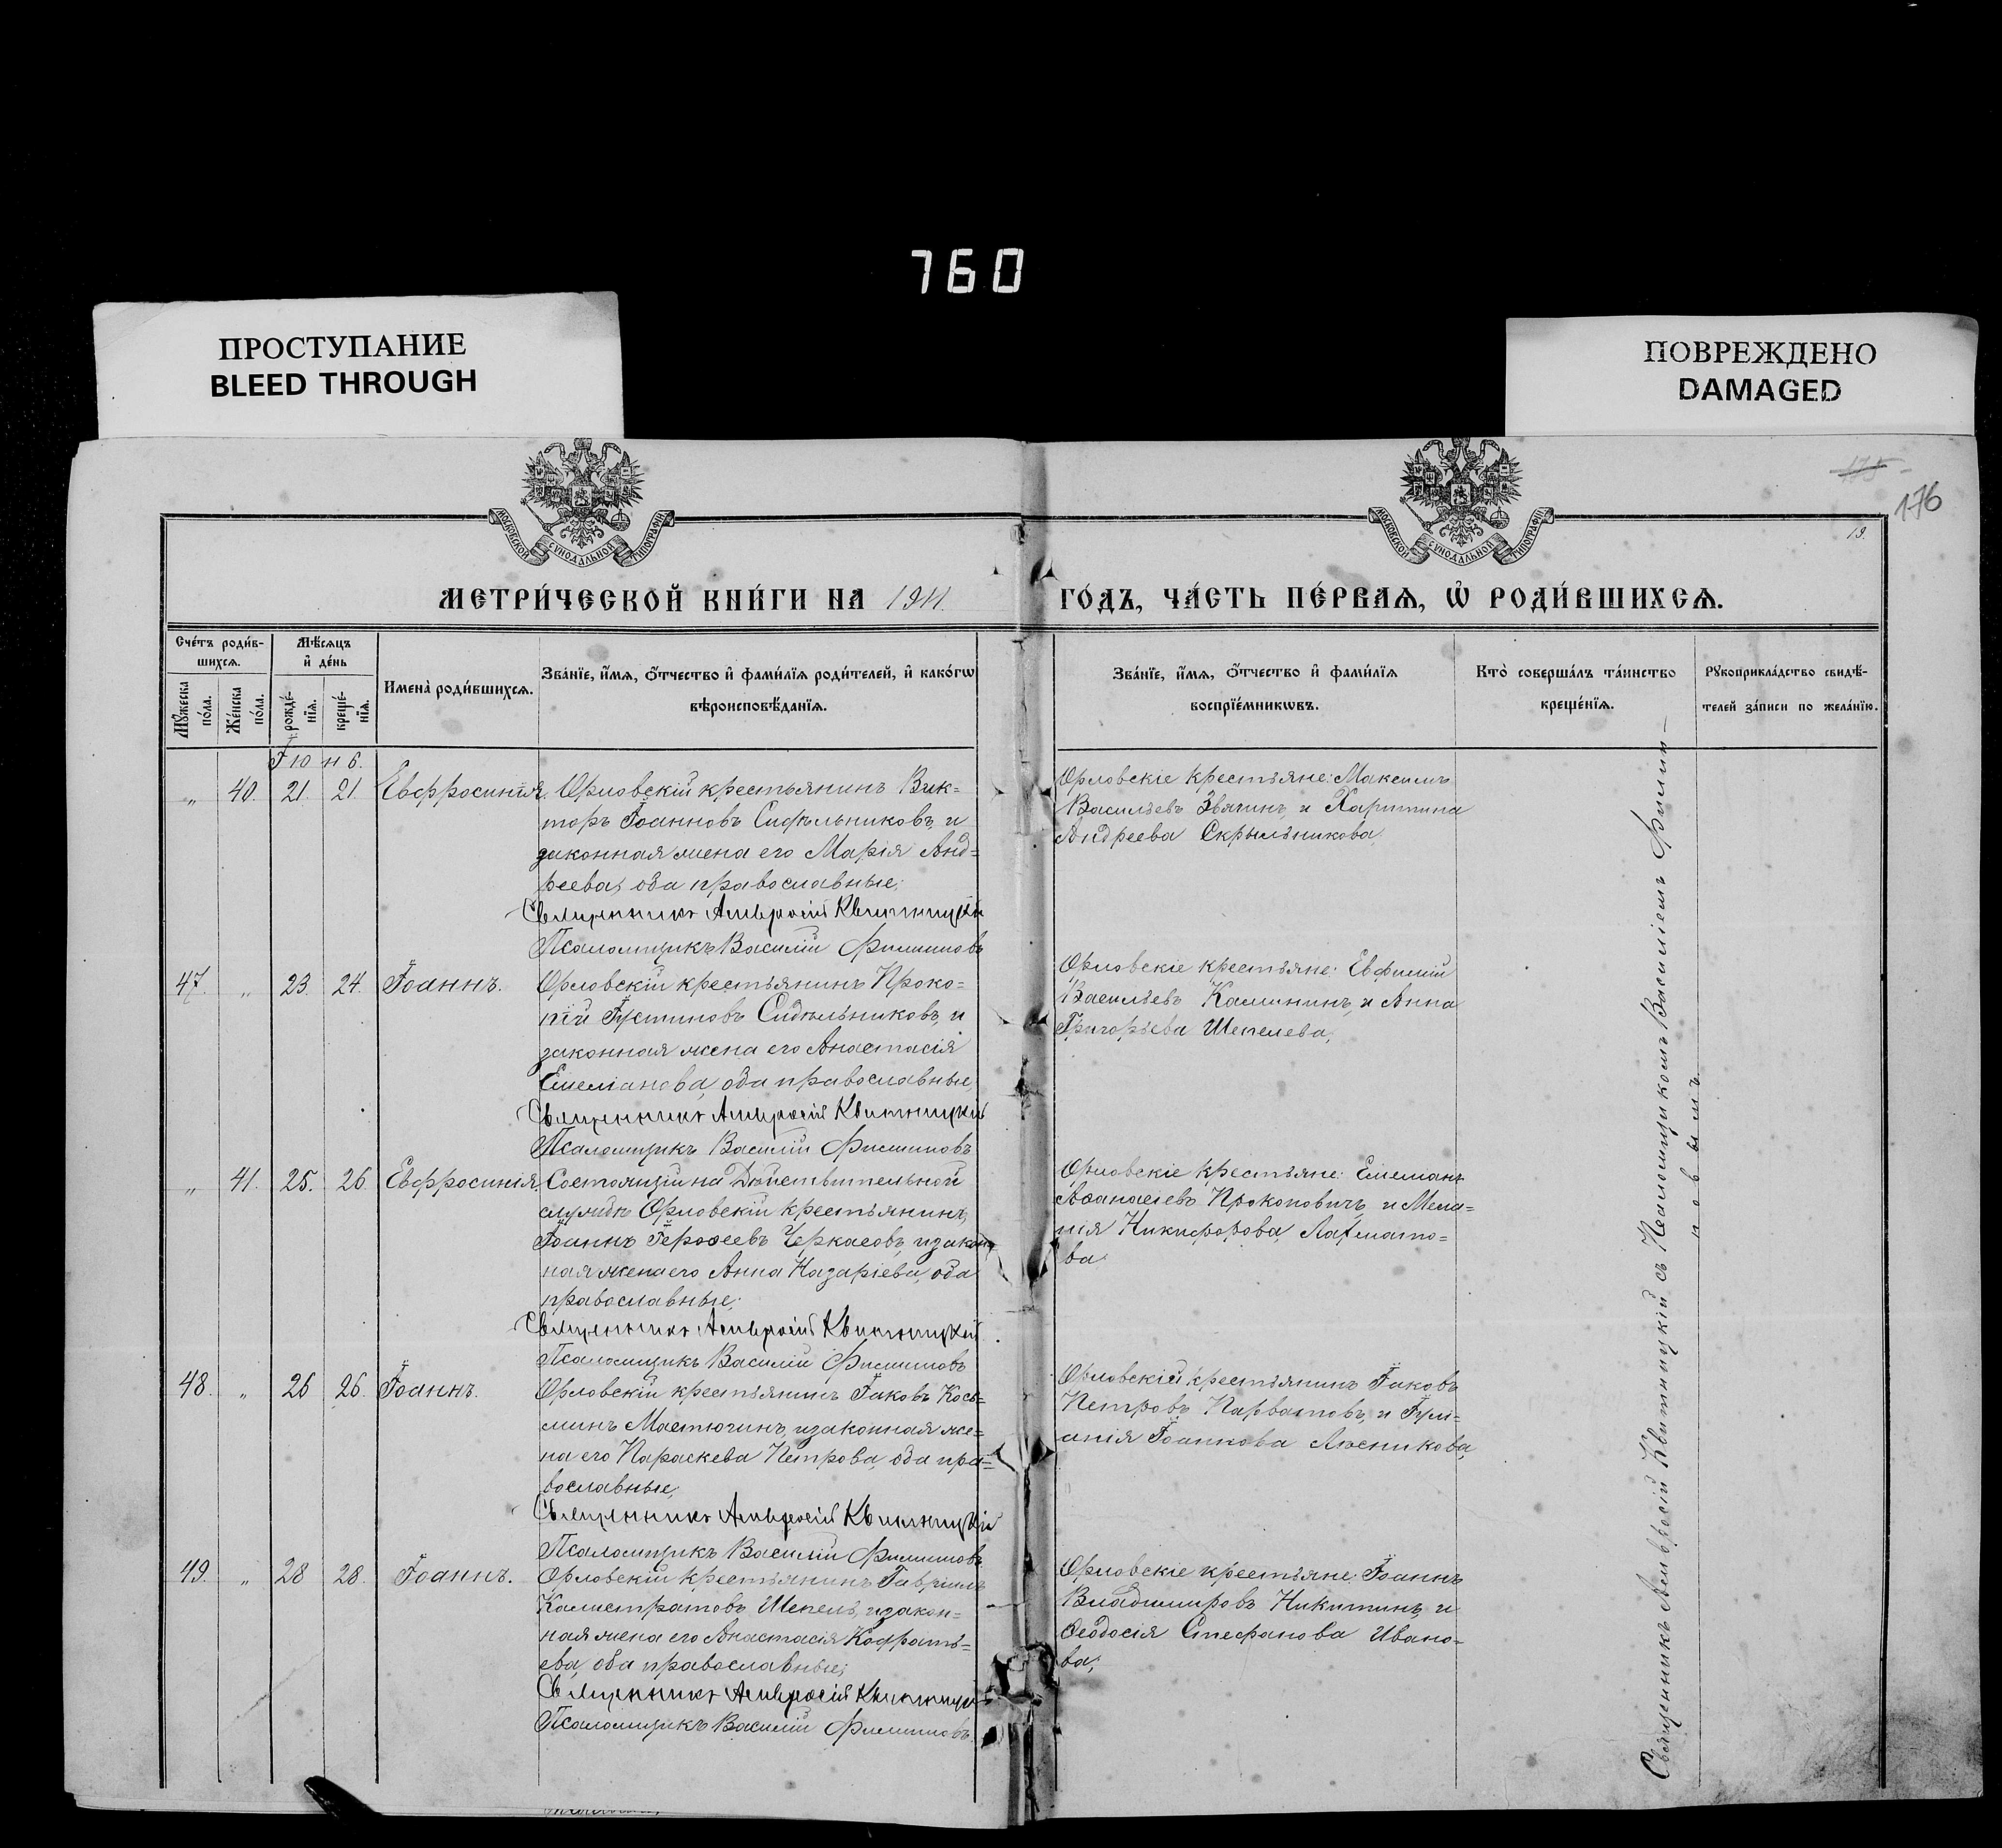 760
ПРОСТУПАНИЕ
BLEED THROUGH
ПОВРЕЖДЕНО
DAMAGED
175
176
19.
МОСКОВСКОЙ СѴНОДАЛЬНОЙ ТИПОГРАФІИ
МОСКОВСКОЙ СѴНОДАЛЬНОЙ ТИПОГРАФІИ
МЕТРИ́ЧЕСКОЙ КНИ́ГИ НА 1911
ГО́ДЪ, ЧА́СТЬ ПЕ́РВАѦ, Ѡ҆ РОДИ́ВШИХСѦ.
Сче́тъ роди́в-
шихсѧ.
Мꙋ́жеска
по́ла.
Же́нска
по́ла.
Мѣ́сѧцъ
и҆ де́нь
рожде́-
нїѧ.
креще́-
нїѧ.
Имена̀ роди́вшихсѧ.
Зва́нїе, и҆́мѧ, ѻ҆́тчество и҆ фами́лїѧ роди́телей, и҆ како́гѡ
вѣроисповѣ́данїѧ.
Зва́нїе, и҆́мѧ, ѻ҆́тчество и҆ фами́лїѧ
воспрїе́мникѡвъ.
Кто̀ соверша́лъ та́инство
креще́нїѧ.
Рꙋкоприкла́дство свидѣ́-
телей за́писи по жела́нїю.
Іюнь
„ 40. 21. 21. Евфросинія. Орловскій крестьянинъ Вик=
торъ Іоанновъ Сидѣльниковъ, и
законная жена его Марія Анд=
реева, оба православные;
Священникъ Амвросій Квитницкій
Псаломщикъ Василій Филиповъ
Орловскіе крестьяне: Максимъ
Васильевъ Звягинъ, и Харитина
Андреева Скрыльникова,
47. „ 23. 24. Іоаннъ. Орловскій крестьянинъ Проко=
пій Іустиновъ Сидѣльниковъ, и
законная жена его Анастасія
Емеліанова, оба православные,
Священникъ Амвросій Квитницкій
Псаломщикъ Василій Филиповъ
Орловскіе крестьяне: Евфимій
Васильевъ Калининъ, и Анна
Григорьева Шепелева,
„ 41. 25. 26. Евфросинія. Состоящій на Дѣйствительной
службѣ Орловскій крестьянинъ,
Іоаннъ Іероѳеевъ Черкасовъ, и закон
ная жена его Анна Назаріева, оба
православные;
Священникъ Амвросій Квитницкій
Псаломщикъ Василій Филиповъ
Орловскіе крестьяне: Емеліанъ
Аѳанасіевъ Прокоповичъ, и Мела=
нія Никифорова, Лахмато=
ва
48. „ 26 26. Іоаннъ. Орловскій крестьянинъ Іаковъ Косъ=
минъ Мастюгинъ, и законная же=
на его Параскева Петрова, оба пра=
вославные,
Священникъ Амвросій Квитницкій
Псаломщикъ Василій Филиповъ
Орловскій крестьянинъ Іаковъ
Петровъ Парватовъ, и Іули=
анія Іоаннова
49. „ 28 28. Іоаннъ. Орловскій крестьянинъ Гавріилъ
Калистратовъ Шепель, и закон=
ная жена его Анастасія Кодрать=
ева, оба православные;
Священникъ Амвросій Квитницкій
Псаломщикъ Василій Филиповъ
Орловскіе крестьяне: Іоаннъ
Владимировъ Никитинъ, и
Ѳеодосія Стефанова Ивано=
ва;
Священникъ Амвросій Квитницкій съ Псаломщикомъ Василіемъ Филип-
повымъ